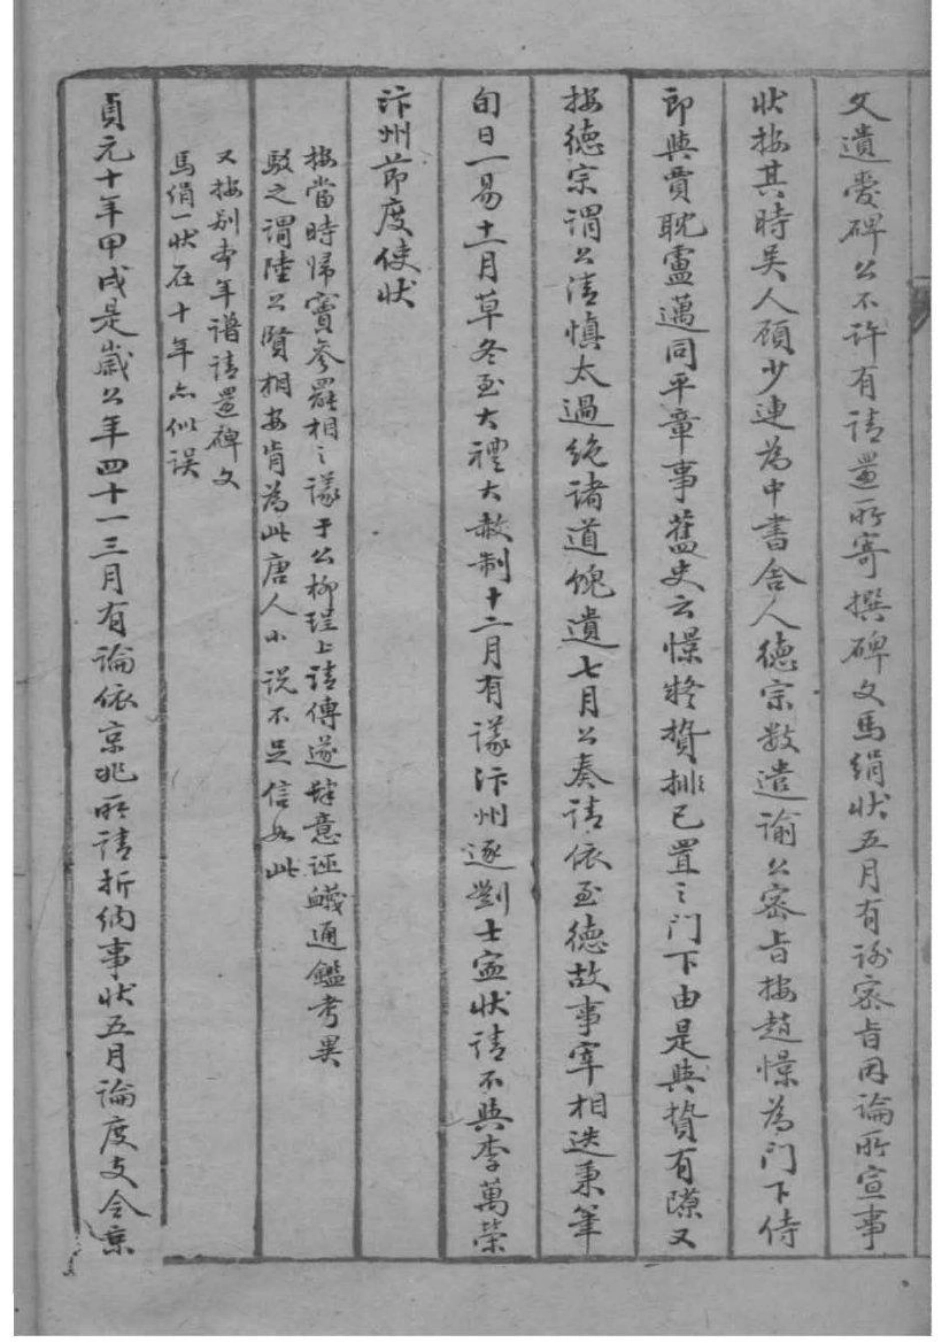 文遺愛碑公不許有請還所寄撰碑文馬絹狀五月有謝密旨因論所宣事
狀按其時吳人顧少連為中書舍人德宗数遣諭公密旨按趙憬為门下侍
郎與賈耽盧邁同平章事舊史云憬疑贄排已置之门下由是與贄有隙又
按德宗謂公清慎太過絶诸道饋遺七月公奏請依至德故事宰相迭秉筆
旬日一易十一月草冬至大禮大赦制十二月有議汴州逐劉士寧状請不與李萬榮
汴州節度使状
按當時歸竇參罷相之議于公柳珵上請傳遂肆意誣衊通鑑考異
駁之謂陸公賢相安肯為此唐人小说不足信如此
又按别本年譜請還碑文
馬絹一状在十年亦似误
貞元十年甲戌是歲公年四十一三月有論依京兆所請折納事状五月論度支令京